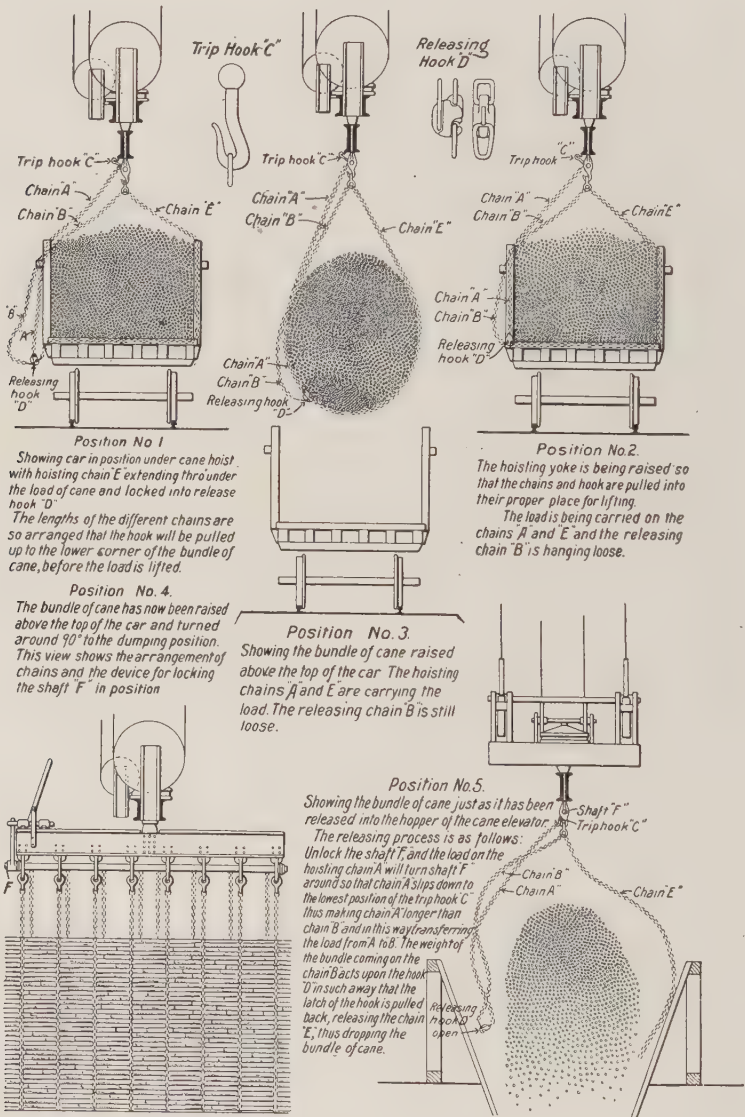 Trip Hook "C"
Releasing
Hook "D"
Trip hook "C"
Chain "A"
Chain "B"
Chain "E"
"B"
A
Releasing
hook
"D"
Trip hook "C"
Chain "A"
Chain "B"
Chain "E"
Chain "A"
Chain "B"
Releasing hook
"D"
"C"
Trip hook
Chain "A"
Chain "B"
Chain "E"
Chain "A"
Chain "B"
Releasing
hook "D"
Position No 1
Showing car in position under cane hoist
with hoisting chain "E" extending thro' under
the load of cane and locked into release
hook "D"
The lengths of the different chains are
so arranged that the hook will be pulled
up to the lower corner of the bundle of
cane, before the load is lifted.
Position No.2.
The hoisting yoke is being raised so
that the chains and hook are pulled into
their proper place for lifting.
The load is being carried on the
chains "A" and "E" and the releasing
chain "B" is hanging loose.
Position No. 3.
Showing the bundle of cane raised
above the top of the car The hoisting
chains "A" and E are carrying the
load. The releasing chain "B" is still
loose.
Position No. 4.
The bundle of cane has now been raised
above the top of the car and turned
around 90° to the dumping position.
This view shows the arrangement of
chains and the device for locking
the shaft "F" in position
F
Position No.5.
Showing the bundle of cane just as it has been
released into the hopper of the cane elevator.
The releasing process is as follows:
Unlock the shaft "F", and the load on the
hoisting chain "A" will turn shaft "F"
around so that chain "A" slips down to
the lowest position of the trip hook "C"
thus making chain "A" longer than
chain "B" and in this way transferring
the load from A to B. The weight of
the bundle coming on the
chain "B" acts upon the hook
"D" in such a way that the
latch of the hook is pulled
back, releasing the chain
"E," thus dropping the
bundle of cane.
Shaft "F"
Trip hook "C"
Chain B"
Chain A"
Chain "E"
Releasing
hook D
open